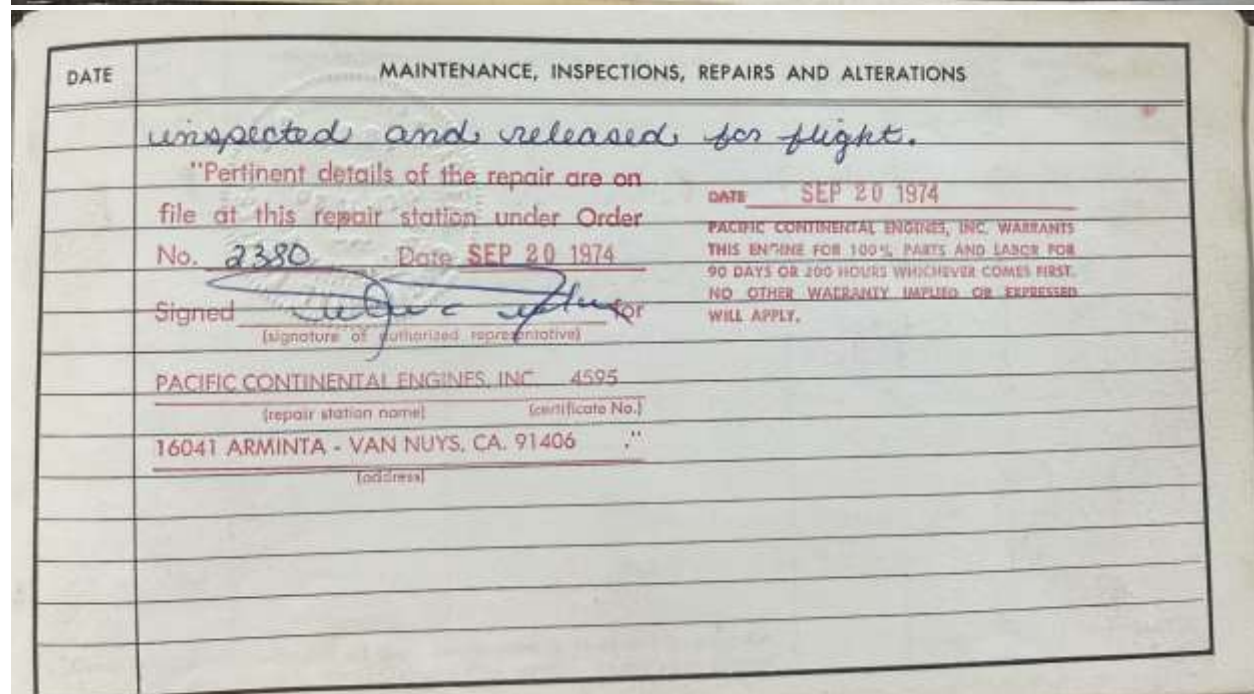 DATE
MAINTENANCE, INSPECTIONS, REPAIRS AND ALTERATIONS
inspected and released for flight.
"Pertinent details of the repair are on
file at this repair station under Order
No. 2380 Date SEP 20 1974
Signed for
(signature of authorized representative)
PACIFIC CONTINENTAL ENGINES, INC. 4595
(repair station name) (certificate No.)
16041 ARMINTA - VAN NUYS, CA. 91406 ."
(address)
DATE SEP 20 1974
PACIFIC CONTINENTAL ENGINES, INC. WARRANTS
THIS ENGINE FOR 100% PARTS AND LABOR FOR
90 DAYS OR 200 HOURS WHICHEVER COMES FIRST.
NO OTHER WARRANTY IMPLIED OR EXPRESSED
WILL APPLY.